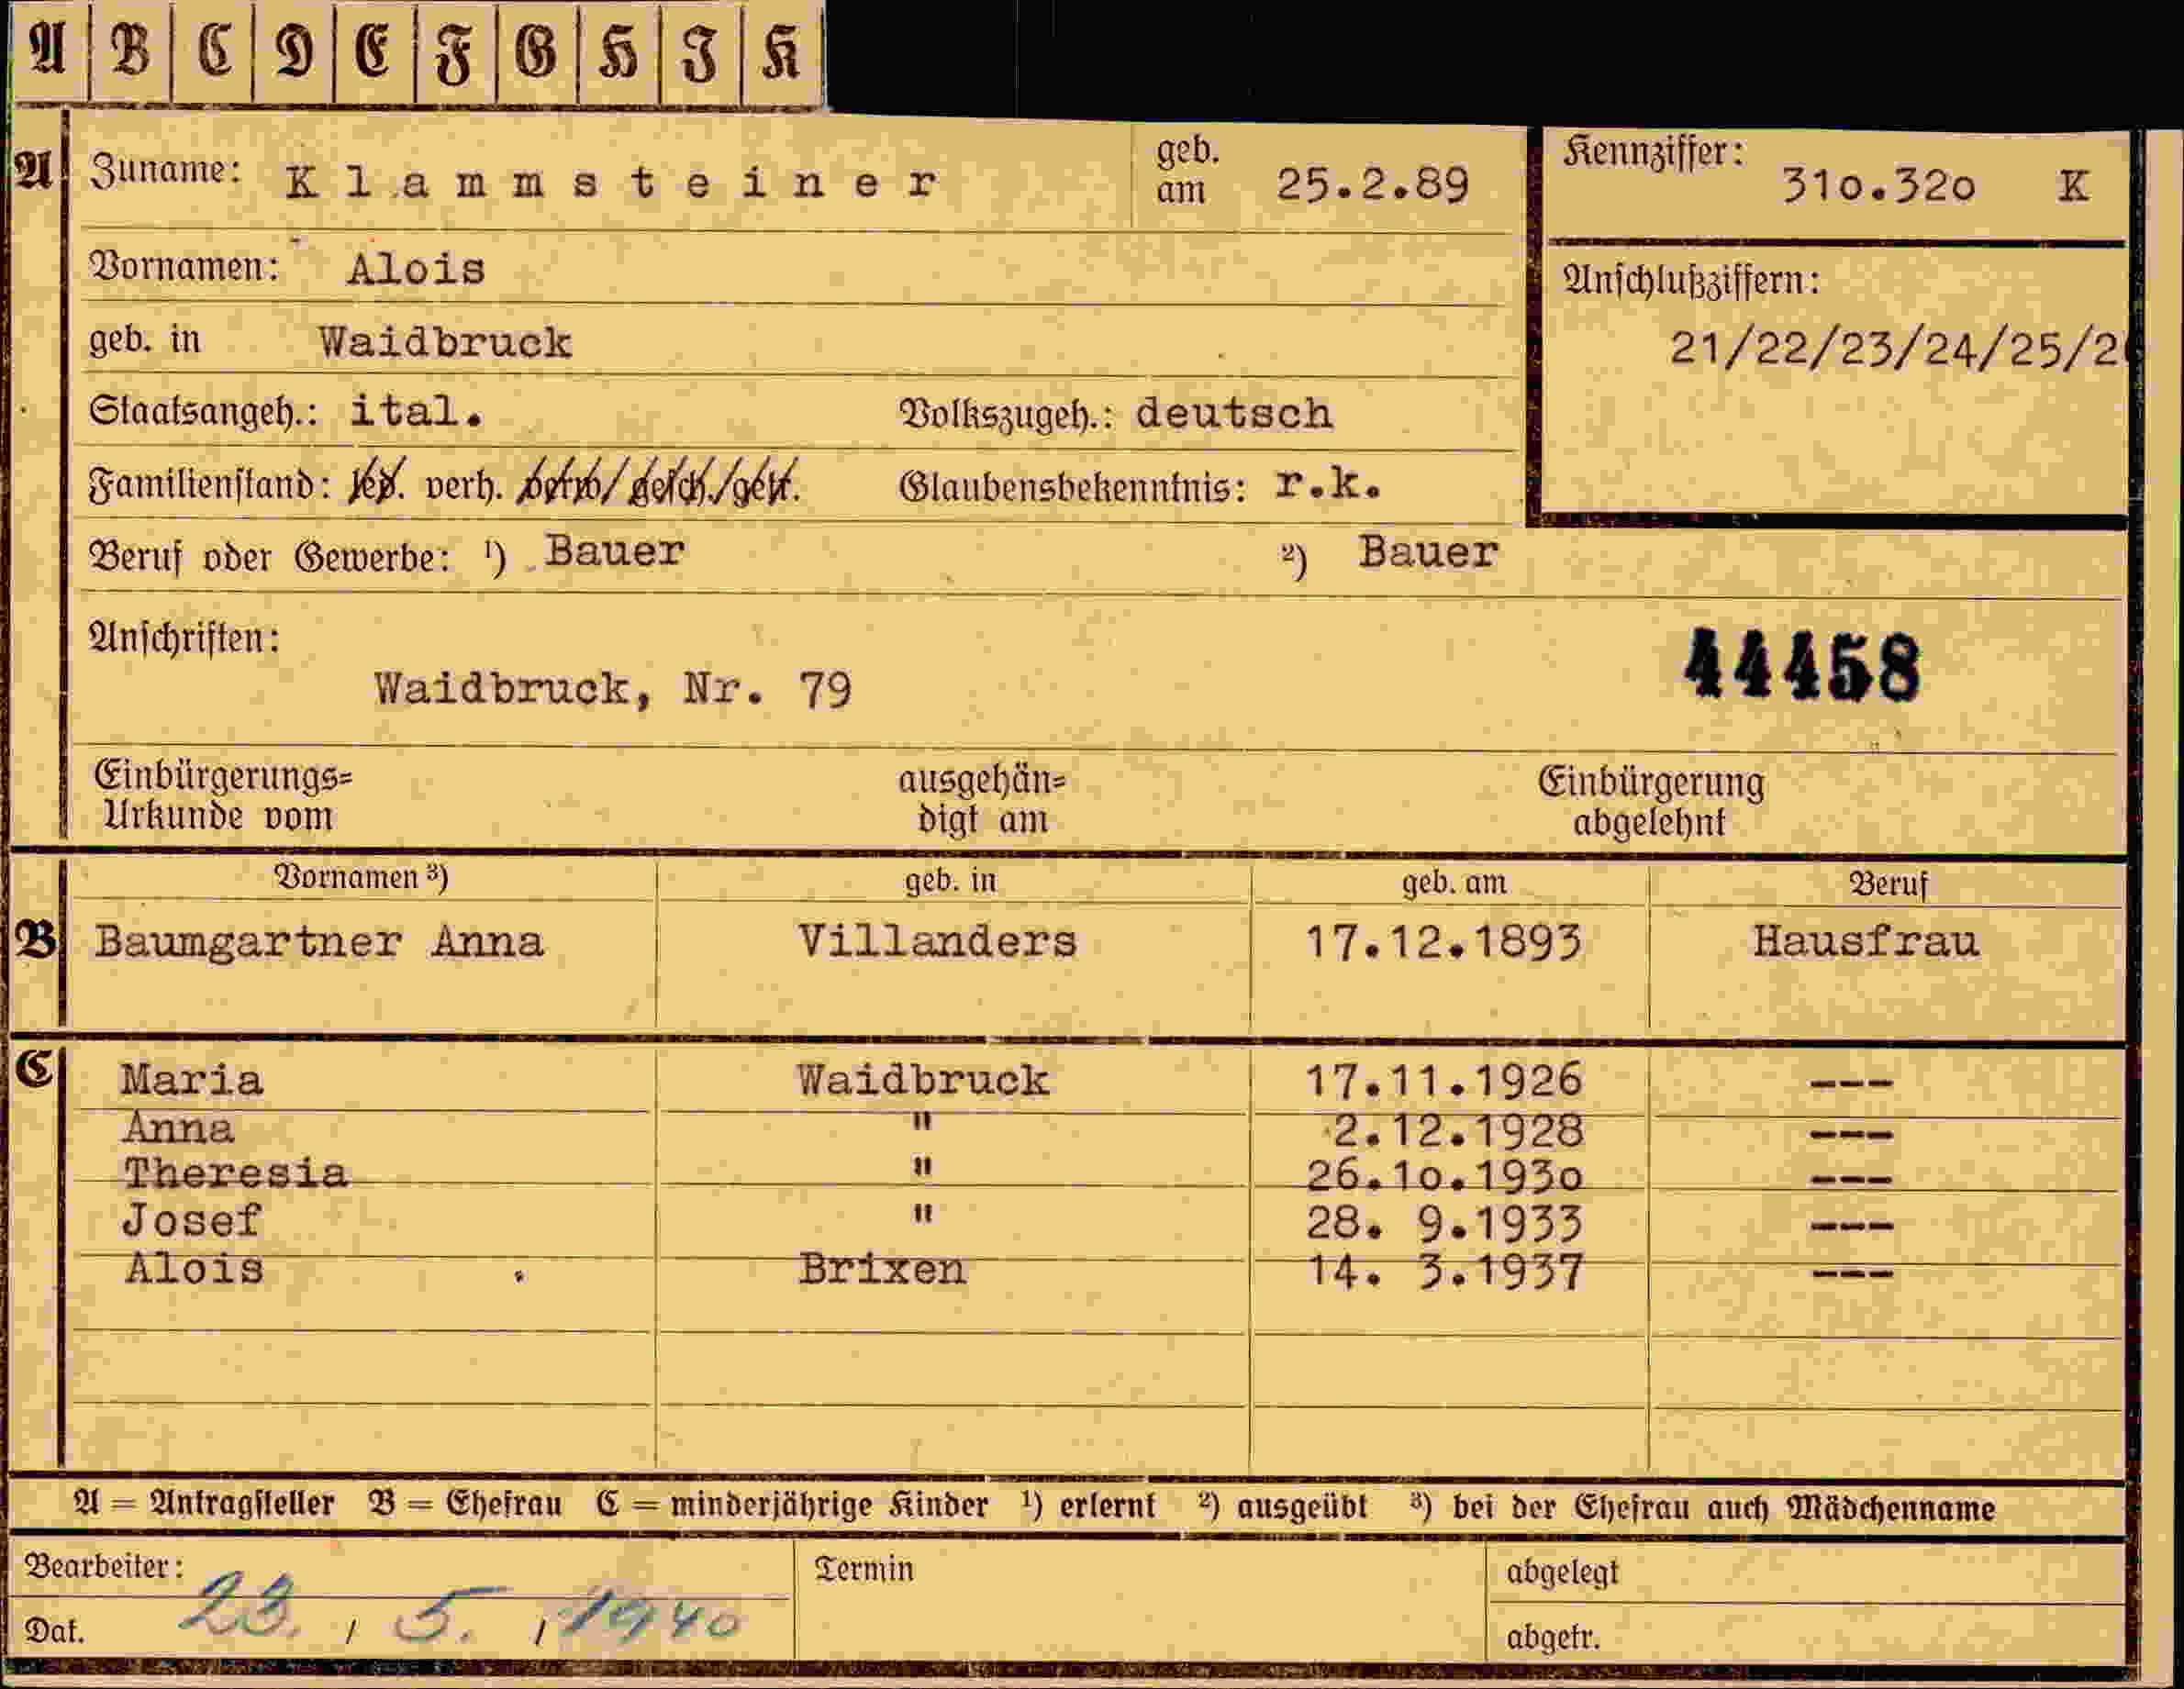 A B C D E F G H J K
A Zuname: Klammsteiner geb. am 25.2.89 Kennziffer: 310.320 K
Vornamen: Alois Anschlußziffern:
geb. in Waidbruck 21/22/23/24/25/2
Staatsangeh.: ital. Volkszugeh.: deutsch
Familienstand: led. verh. verw/gesch./getr. Glaubensbekenntnis: r.k.
Beruf oder Gewerbe: ¹) Bauer ²) Bauer
Anschriften:
Waidbruck, Nr. 79 44458
Einbürgerungs= ausgehän= Einbürgerung
Urkunde vom digt am abgelehnt
Vornamen ³) geb. in geb. am Beruf
B Baumgartner Anna Villanders 17.12.1893 Hausfrau
C Maria Waidbruck 17.11.1926 ---
Anna " 2.12.1928 ---
Theresia " 26.10.1930 ---
Josef " 28. 9.1933 ---
Alois Brixen 14. 3.1937 ---
A = Antragsteller B = Ehefrau C = minderjährige Kinder ¹) erlernt ²) ausgeübt ³) bei der Ehefrau auch Mädchenname
Bearbeiter: Termin abgelegt
Dat. 23. / 5. / 1940 abgetr.